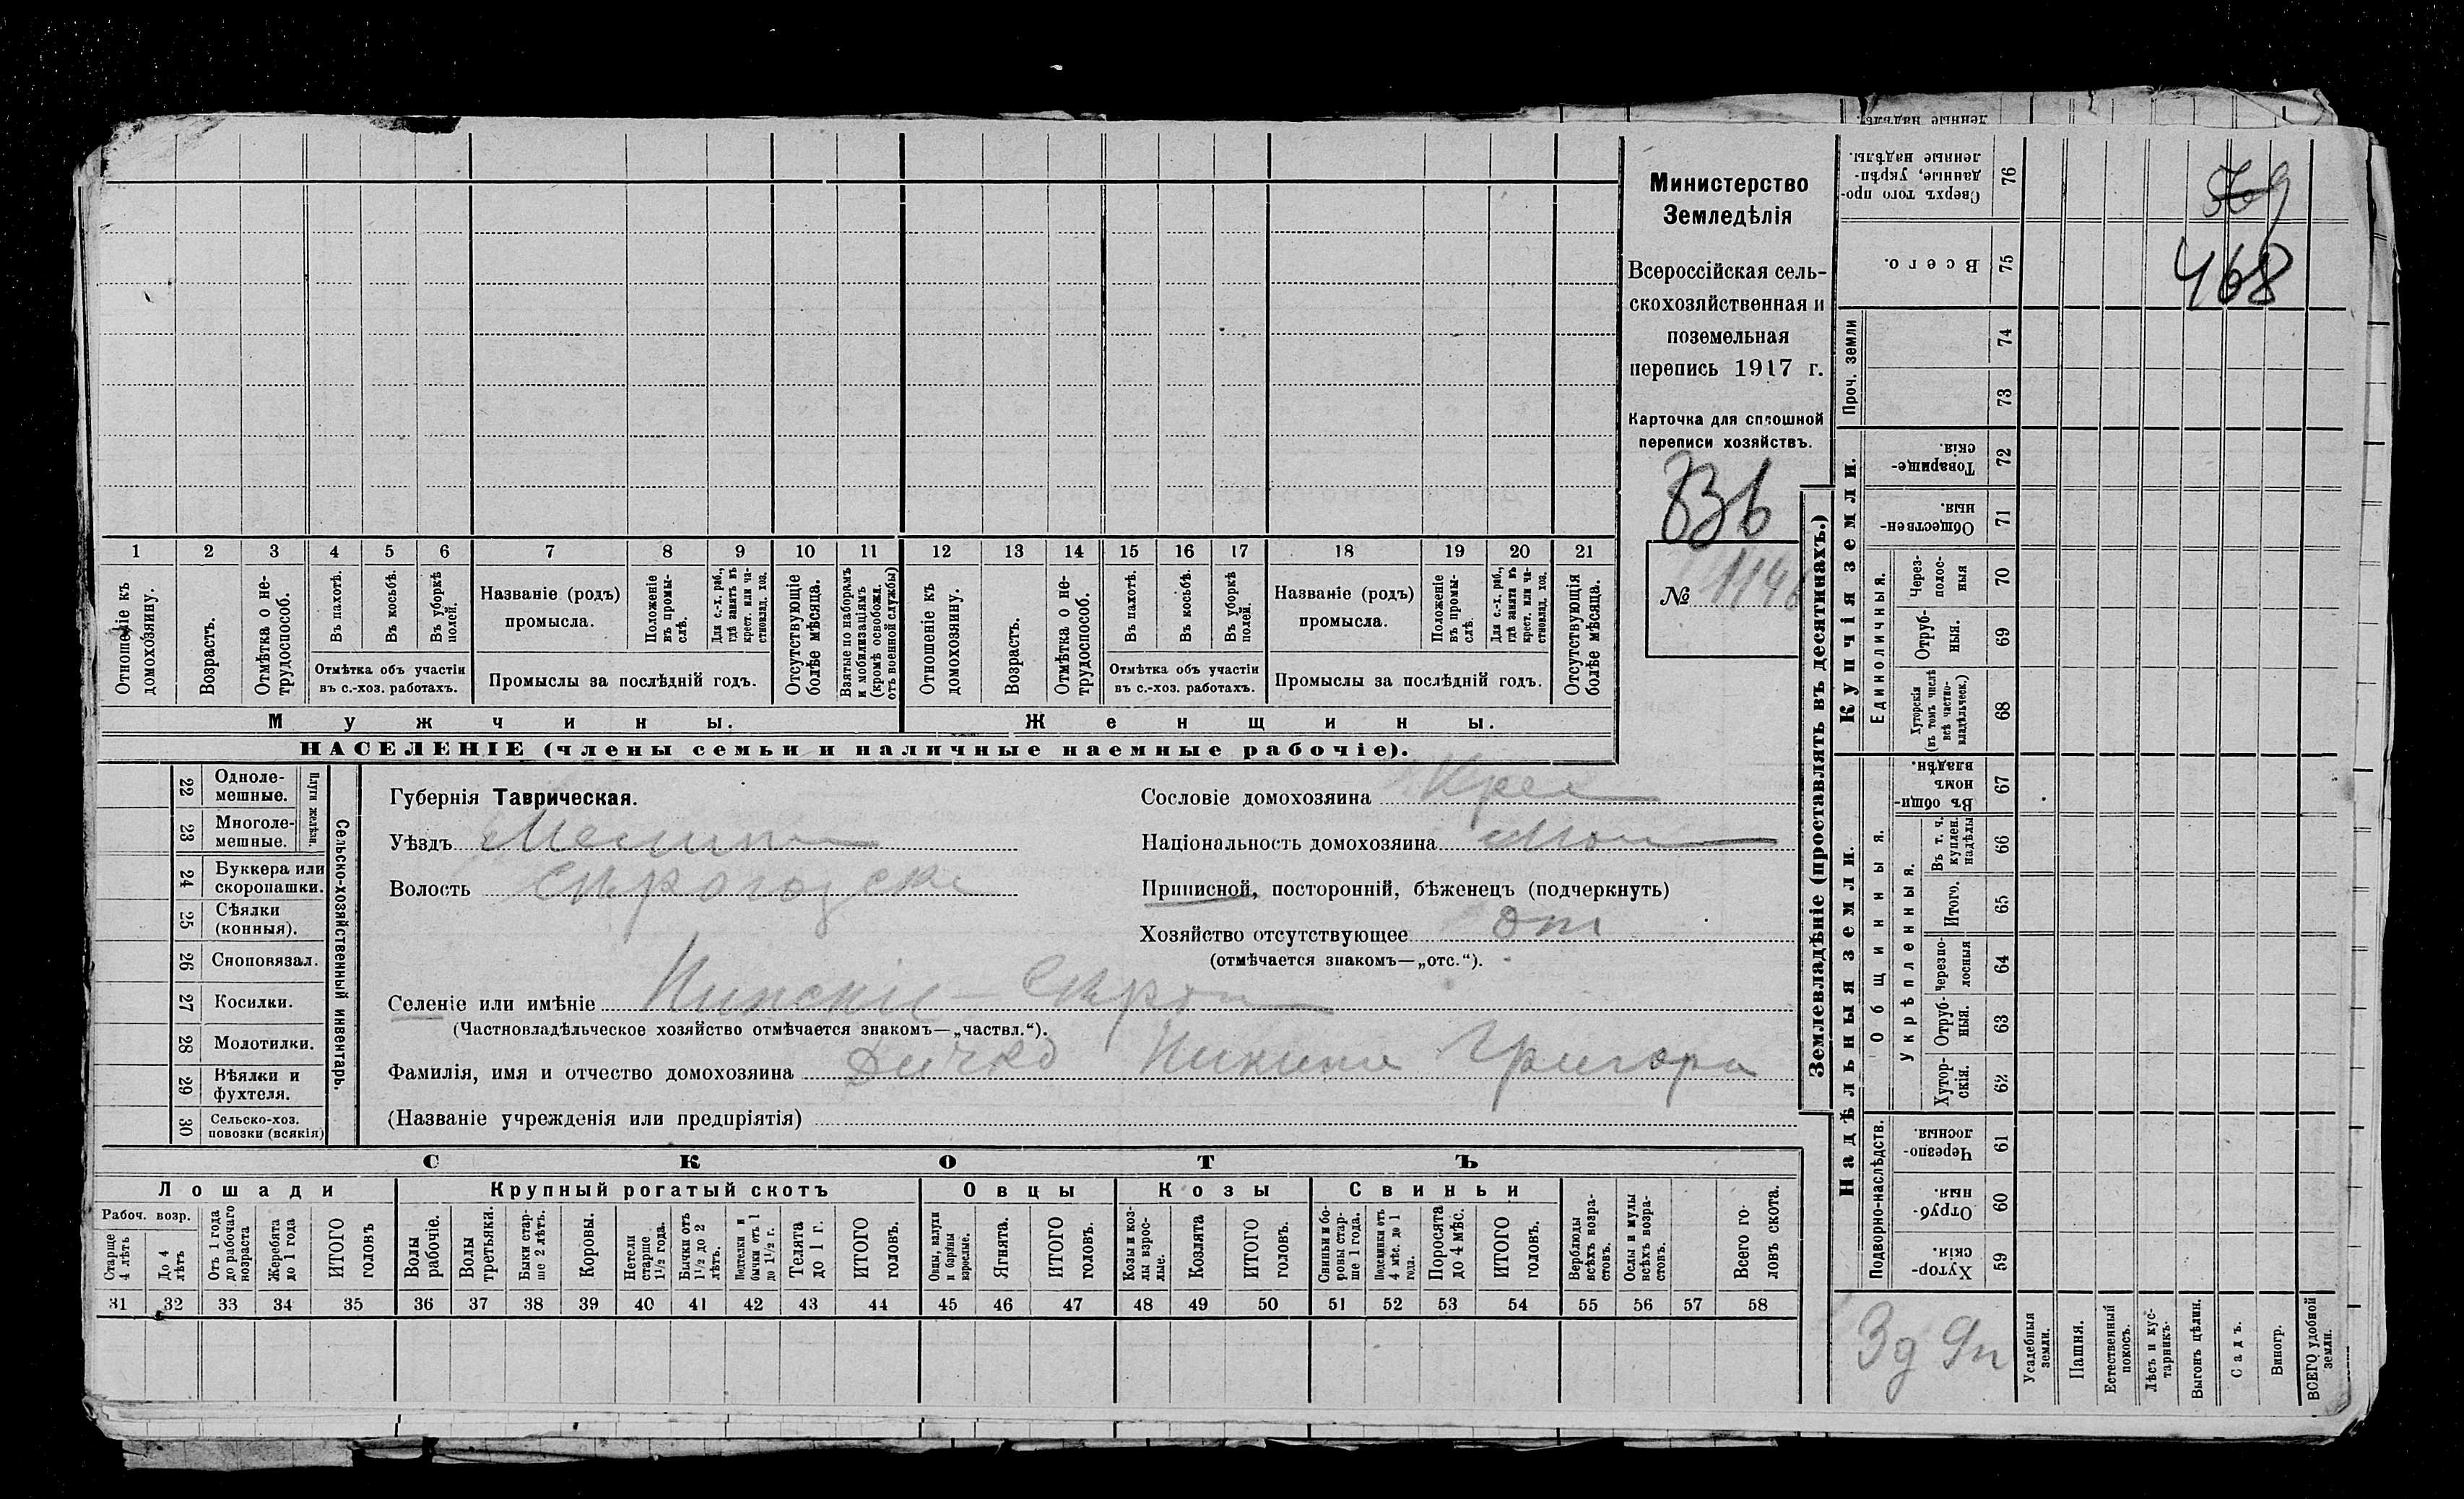 Министерство
Земледѣлія
Всероссійская сель-
скохозяйственная и
поземельная
перепись 1917 г.
Карточка для сплошной
переписи хозяйствъ.
№ 1146
1 2 3 4 5 6 7 8 9 10 11 12 13 14 15 16 17 18 19 20 21
Отношеніе къ домохозяину.
Возрастъ.
Отмѣтка о не-трудоспособ.
Въ пахотѣ.
Въ косьбѣ.
Въ уборкѣ полей.
Отмѣтка объ участіи
въ с.-хоз. работахъ.
Названіе (родъ)
промысла.
Положеніе въ промы-слѣ.
Для с.-х. раб., гдѣ занятъ въ крест. или ча-стновлад. хоз.
Промыслы за послѣдній годъ.
Отсутствующіе болѣе мѣсяца.
Взятые по наборамъ и мобилизаціямъ (кромѣ освобожд. отъ военной службы)
Отношеніе къ домохозяину.
Возрастъ.
Отмѣтка о не-трудоспособ.
Въ пахотѣ.
Въ косьбѣ.
Въ уборкѣ полей.
Отмѣтка объ участіи
въ с.-хоз. работахъ.
Названіе (родъ)
промысла.
Положеніе въ промы-слѣ.
Для с.-х. раб., гдѣ занята въ крест. или ча-стновлад. хоз.
Промыслы за послѣдній годъ.
Отсутствующія болѣе мѣсяца.
Мужчины.
Женщины.
НАСЕЛЕНІЕ (члены семьи и наличные наемные рабочіе).
22 Одноле-мешные.
23 Многоле-мешные.
Плуги желѣзн.
24 Буккера или скоропашки.
25 Сѣялки (конныя).
26 Сноповязал.
27 Косилки.
28 Молотилки.
29 Вѣялки и фухтеля.
30 Сельско-хоз. повозки (всякія)
Сельско-хозяйственный инвентарь.
Губернія Таврическая.
Уѣздъ Мелит
Волость
Селеніе или имѣніе
(Частновладѣльческое хозяйство отмѣчается знакомъ—„частвл.“).
Фамилія, имя и отчество домохозяина Дичко Никита Григор
(Названіе учрежденія или предпріятія)
Сословіе домохозяина Крес
Національность домохозяина
Приписной, посторонній, бѣженецъ (подчеркнуть)
Хозяйство отсутствующее от
(отмѣчается знакомъ—„отс.“).
СКОТЪ
Лошади
Крупный рогатый скотъ
Овцы
Козы
Свиньи
Рабоч. возр.
Старше 4 лѣтъ
До 4 лѣтъ
Отъ 1 года до рабочаго возраста
Жеребята до 1 года
ИТОГО головъ
Волы рабочіе.
Волы третьяки.
Быки стар-ше 2 лѣтъ.
Коровы.
Нетели старше 1½ года.
Бычки отъ 1½ до 2 лѣтъ.
Подтелки и бычки отъ 1 до 1½ г.
Телята до 1 г.
ИТОГО головъ.
Овцы, валухи и бараны взрослые.
Ягнята.
ИТОГО головъ.
Козы и коз-лы взрос-лые.
Козлята
ИТОГО головъ.
Свиньи и бо-ровы стар-ше 1 года.
Подсвинки отъ 4 мѣс. до 1 года.
Поросята до 4 мѣс.
ИТОГО головъ.
Верблюды всѣхъ возра-стовъ.
Ослы и мулы всѣхъ возра-стовъ.
Всего го-ловъ скота.
31 32 33 34 35 36 37 38 39 40 41 42 43 44 45 46 47 48 49 50 51 52 53 54 55 56 57 58
Землевладѣніе (проставлять въ десятинахъ.)
Сверхъ того про-данные, укрѣп-ленные надѣлы. 76
Всего. 75
468
Проч. земли
74
73
Купчія земли.
Товарище-скія. 72
Обществен-ныя. 71
Единоличныя.
Через-полос-ныя 70
Отруб-ныя. 69
Хуторскія (въ томъ числѣ всѣ частно-владѣльческ.) 68
Надѣльныя земли.
Общинныя.
Въ общин-номъ владѣн. 67
Укрѣпленныя.
Въ т. ч. куплен. надѣлы 66
Итого. 65
Черезпо-лосныя 64
Отруб-ныя. 63
Хутор-скія. 62
Подворно-наслѣдств.
Черезпо-лосныя 61
Отруб-ныя. 60
Хутор-скія. 59
3д 9п
Усадебныя земли.
Пашня.
Естественный покосъ.
Лѣсъ и кус-тарникъ.
Выгонъ цѣлин.
Садъ.
Виногр.
ВСЕГО удобной земли.